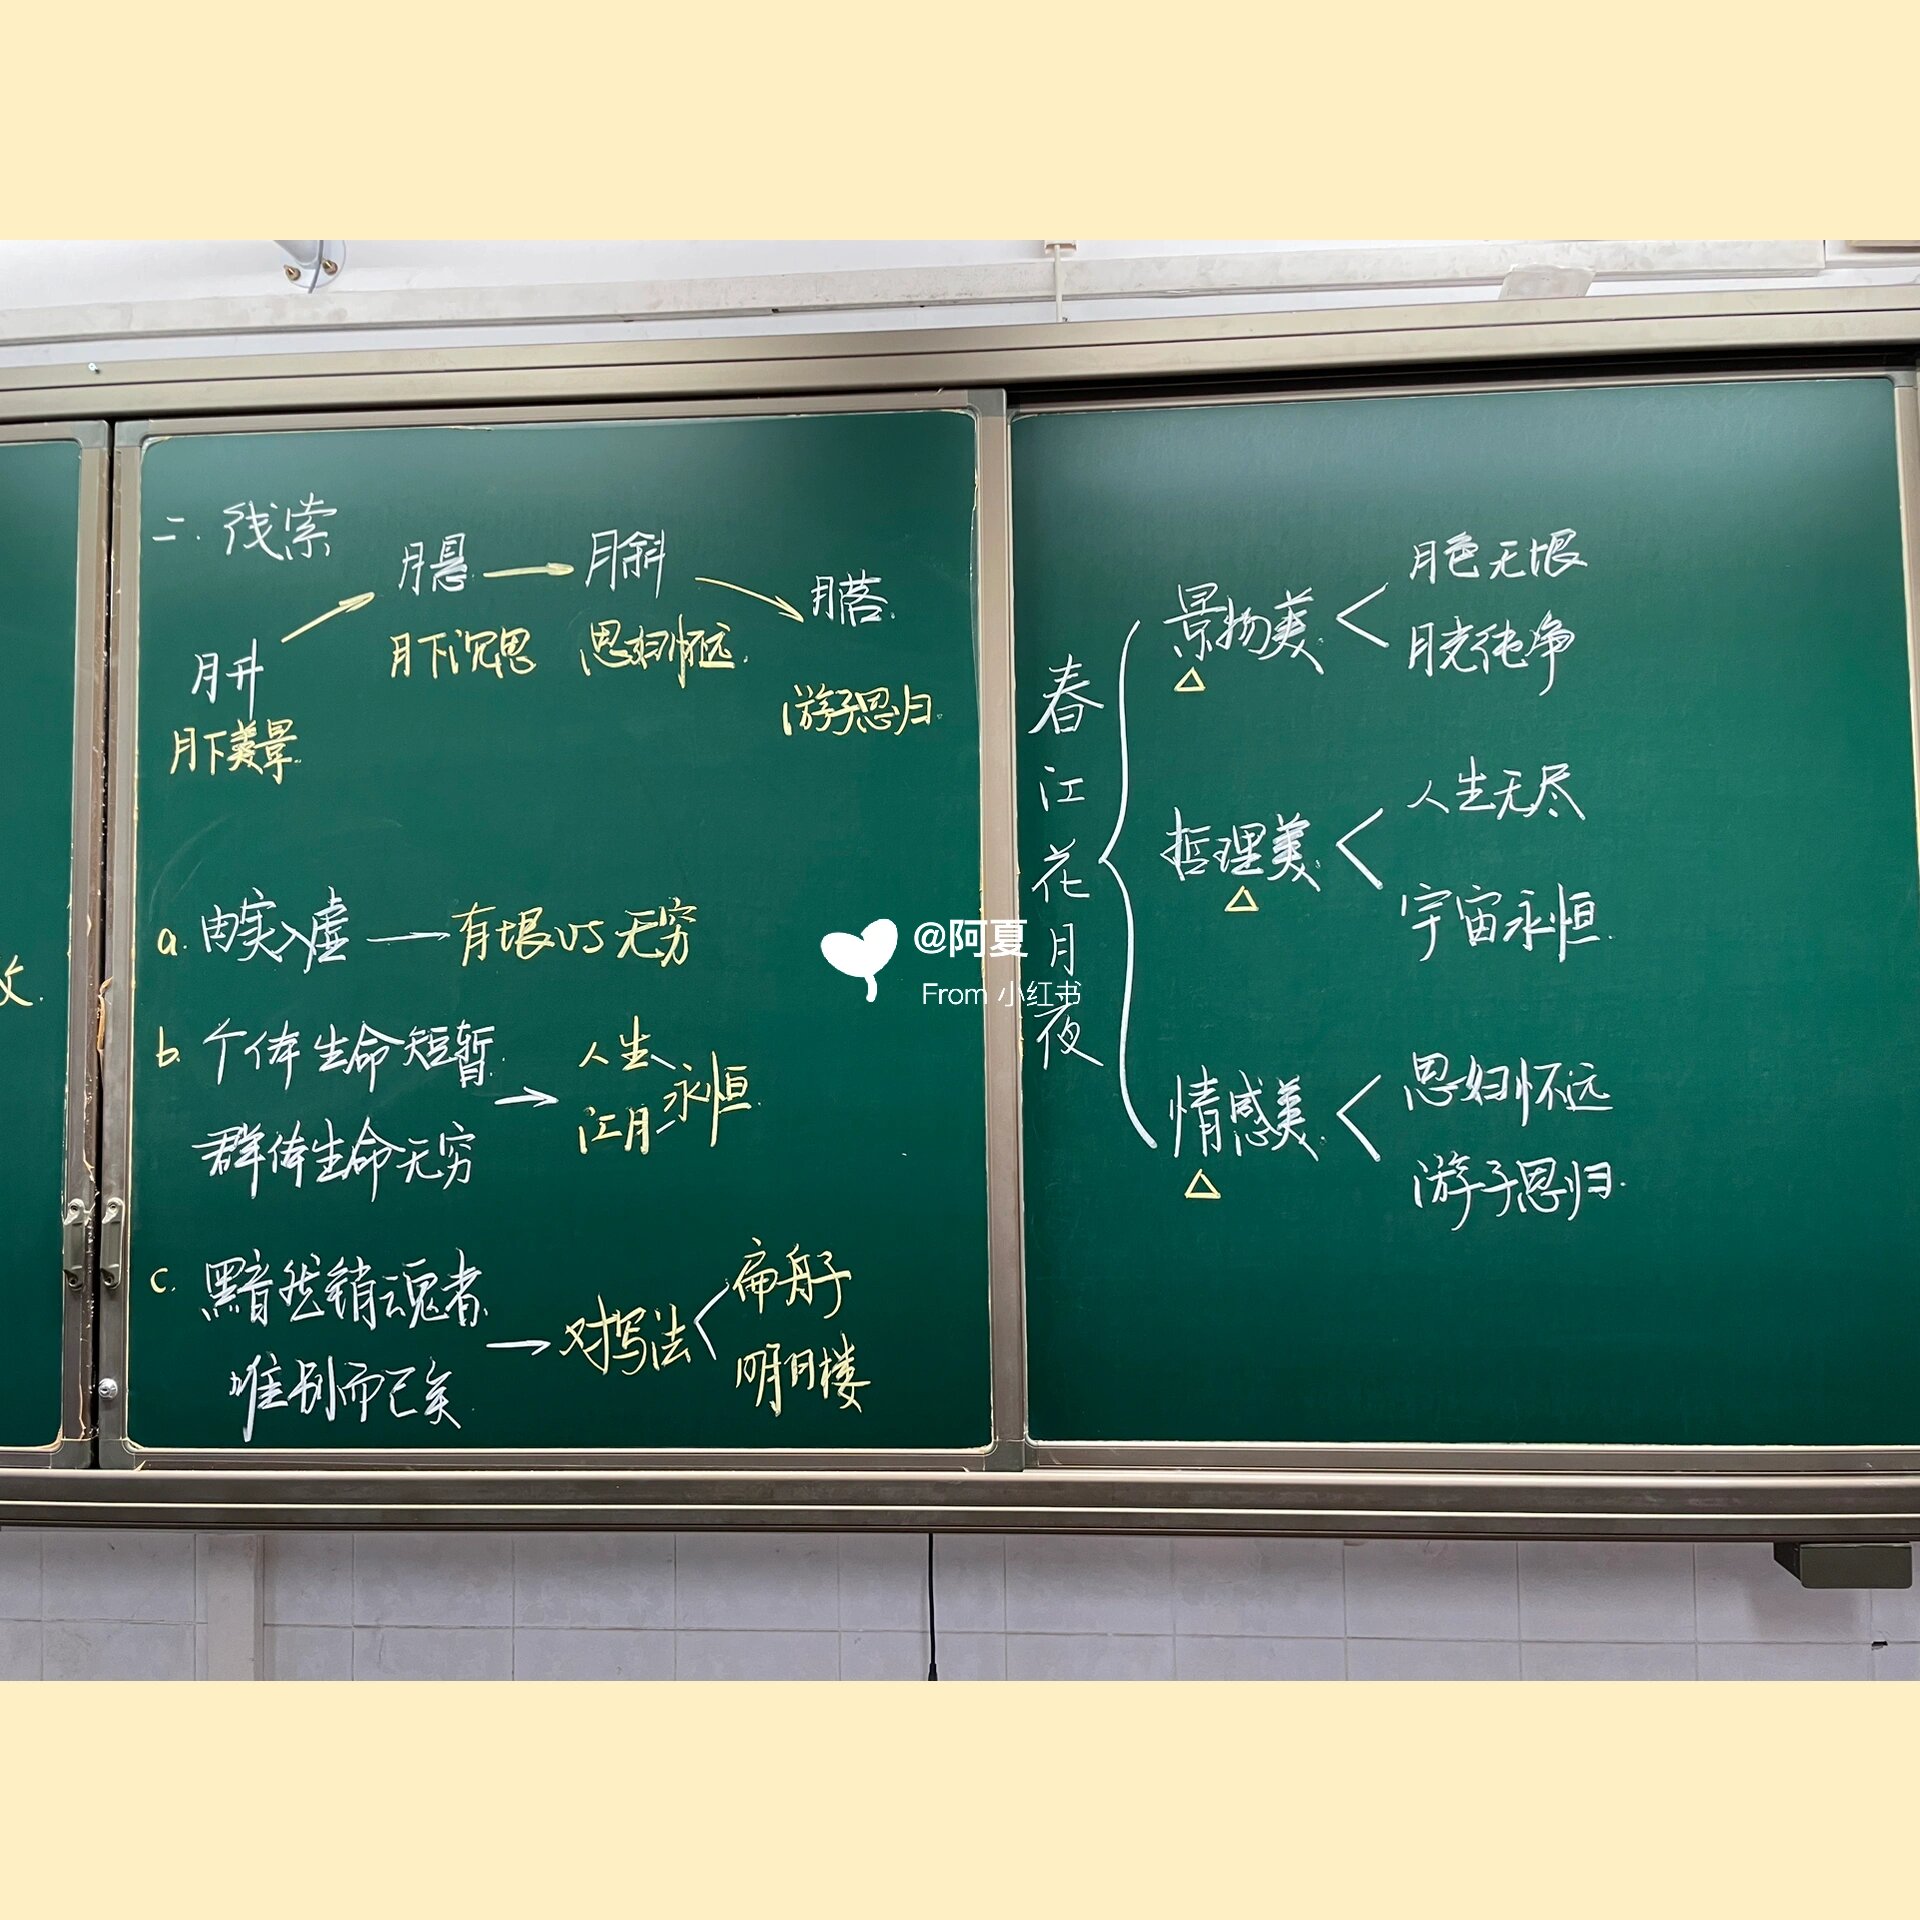 二.线索
月升
月下美景.
月悬
月下沉思
月斜
思妇怀远.
月落.
游子思归.
a.由实入虚 有垠VS无穷
b.个体生命短暂.
群体生命无穷
人生
江月 永恒.
c.黯然销魂者.
唯别而已矣.
对写法
扁舟子
明月楼
春江花月夜
景物美.
月色无垠
月光纯净
哲理美.
人生无尽
宇宙永恒.
情感美.
思妇怀远
游子思归.
@阿夏
From 小红书